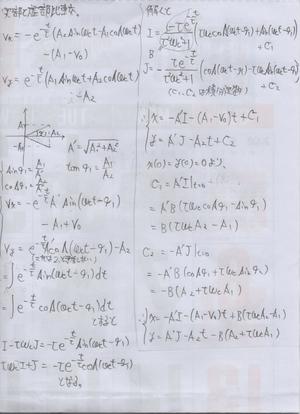 実部と虚部比較
Vx = -e^{-t/τ}(A₂ sin ωct - A₁ cos ωct)
-(A₁-V₀)
Vy = e^{-t/τ}(A₁ sin ωct + A₂ cos ωct)
- A₂
A' = √(A₁²+A₂²)
sin φ₁ = A₁/A'
cos φ₁ = A₂/A'
tan φ₁ = A₁/A₂
Vx = -e^{-t/τ} A' sin(ωct-φ₁)
-A₁+V₀
Vy = e^{-t/τ} A' cos(ωct-φ₁)-A₂
I = ∫e^{-t/τ} sin(ωct-φ₁)dt
J = ∫e^{-t/τ} cos(ωct-φ₁)dt
とすると
I - τωcJ = -τe^{-t/τ} sin(ωct-φ₁)
τωcI + J = -τe^{-t/τ} cos(ωct-φ₁)
となる。
解くて
I = -τe^{-t/τ}/(τ²ωc²+1) (τωc cos(ωct-φ₁)+sin(ωct-φ₁))
+C₁
J = -τe^{-t/τ}/(τ²ωc²+1) (cos(ωct-φ₁)-τωc sin(ωct-φ₁))
+C₂
(C₁, C₂は積分定数)
∴ x = -A'I-(A₁-V₀)t+C₁
y = A'J-A₂t+C₂
x(0)=y(0)=0より、
C₁ = A'I|t=0
= A'B(τωc cos φ₁ - sin φ₁)
= B(τωcA₂-A₁)
C₂ = -A'J|t=0
= -A'B(cos φ₁+τωc sin φ₁)
= -B(A₂+τωcA₁)
∴ x = -A'I-(A₁-V₀)t+B(τωcA₂-A₁)
y = A'J-A₂t-B(A₂+τωcA₁)